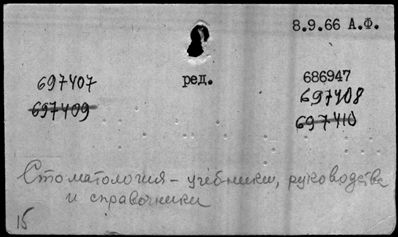 8.9.66 А.Ф.
697407 ред. 686947
697409 697408
697410
Стоматология – учебники, руководства
и справочники
15